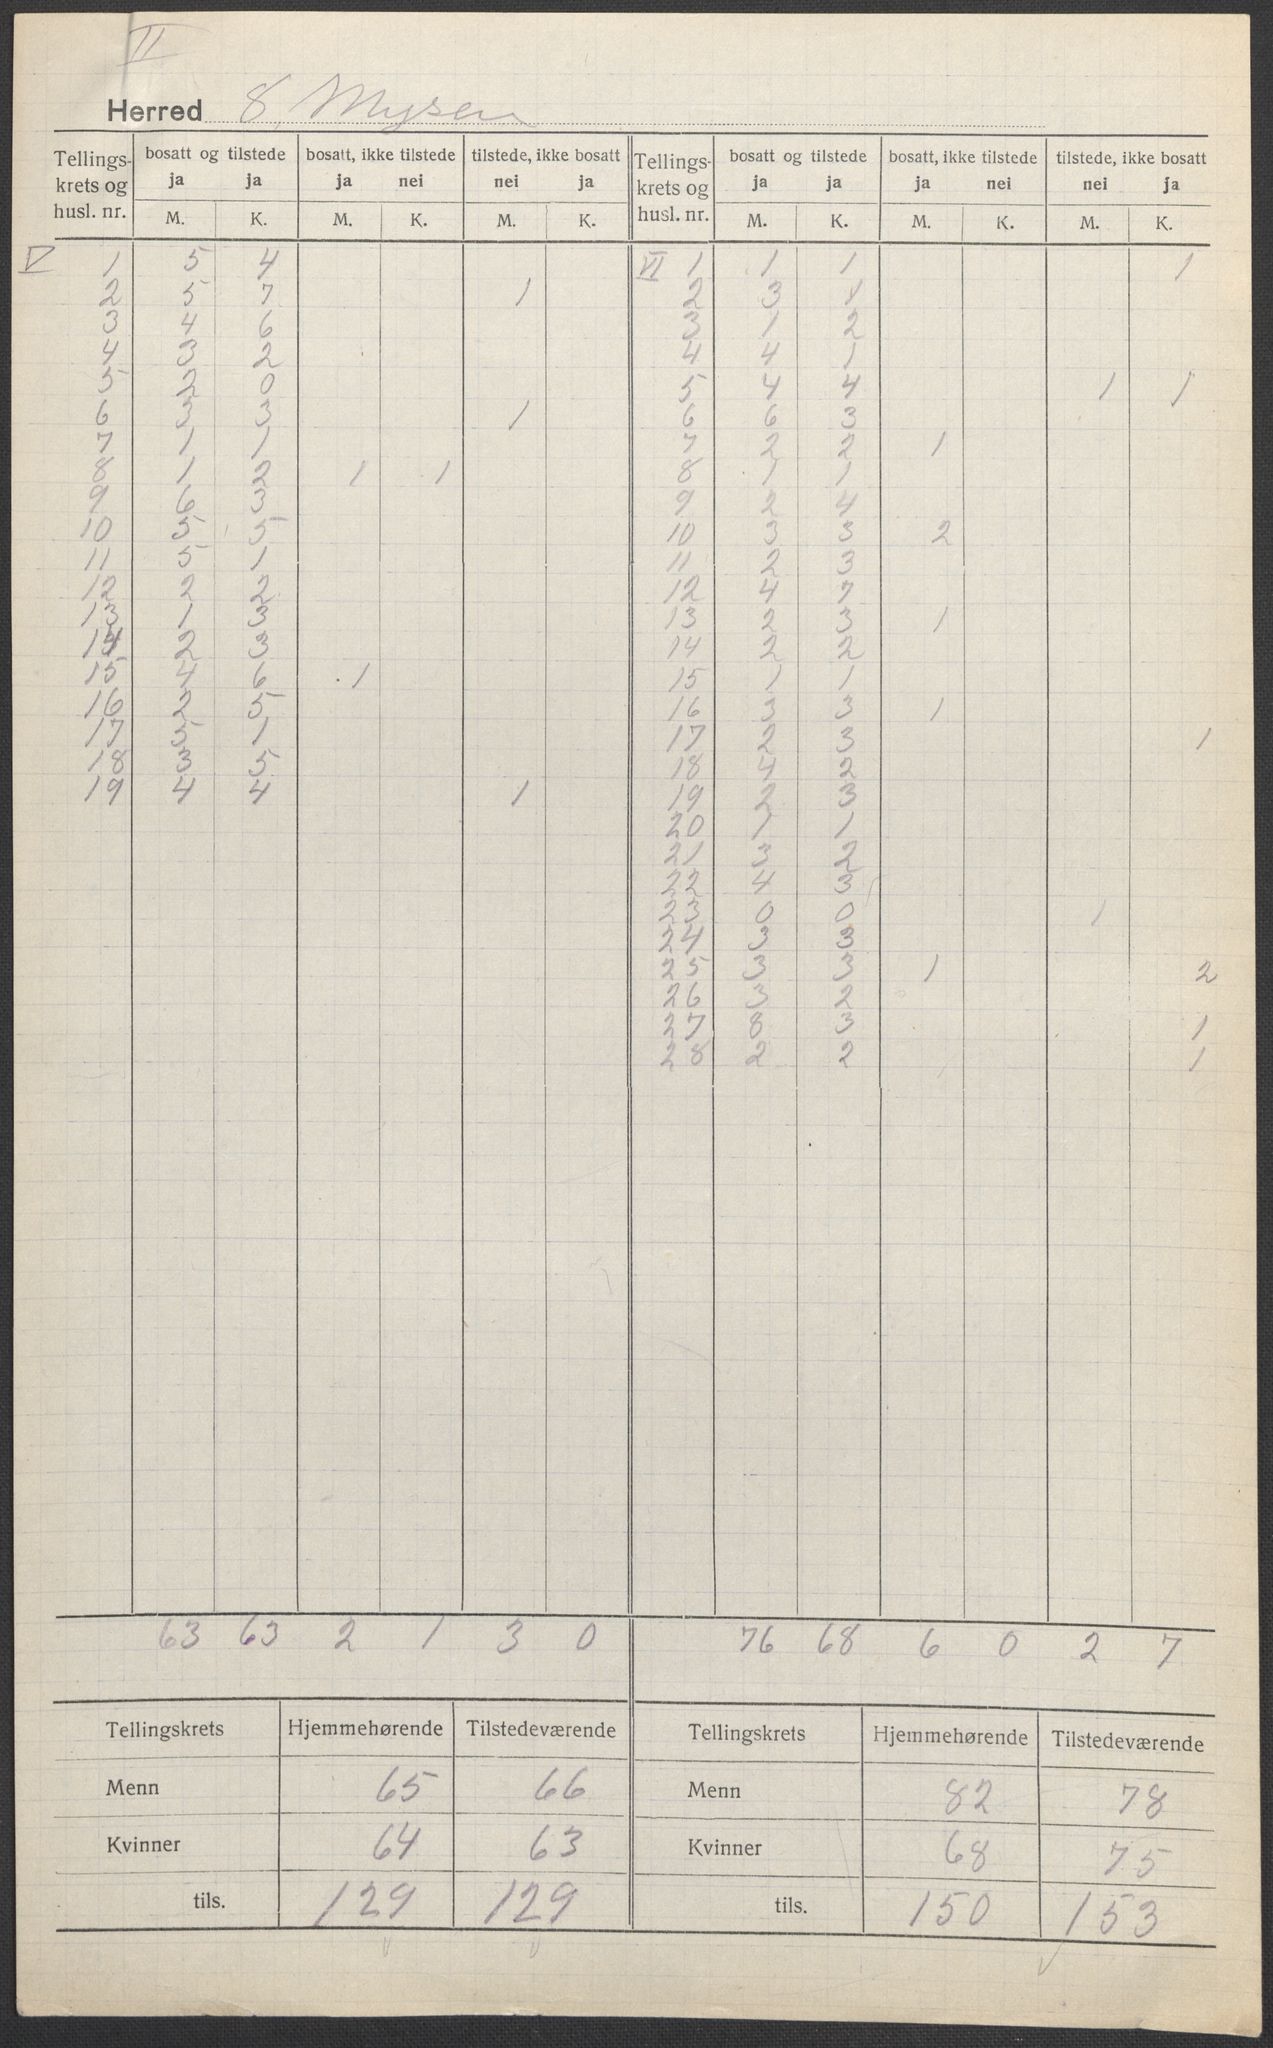 II
Herred 8, Mysen
Tellings- krets og husl. nr. | bosatt og tilstede ja M. | ja K. | bosatt, ikke tilstede ja M. | nei K. | tilstede, ikke bosatt nei M. | ja K. | Tellings- krets og husl. nr. | bosatt og tilstede ja M. | ja K. | bosatt, ikke tilstede ja M. | nei K. | tilstede, ikke bosatt nei M. | ja K.
V 1 | 5 | 4 | | | | | VI 1 | 1 | 1 | | | | 1
2 | 5 | 7 | | | 1 | | 2 | 3 | | | | |
3 | 4 | 6 | | | | | 3 | 1 | 2 | | | |
4 | 3 | 2 | | | | | 4 | 4 | 1 | | | |
5 | 2 | 0 | | | | | 5 | 4 | 4 | | | 1 | 1
6 | 3 | 3 | | | 1 | | 6 | 6 | 3 | | | |
7 | 1 | 1 | | | | | 7 | 2 | 2 | 1 | | |
8 | 1 | 2 | 1 | 1 | | | 8 | 1 | 1 | | | |
9 | 6 | 3 | | | | | 9 | 2 | 4 | | | |
10 | 5 | 5 | | | | | 10 | 3 | 3 | 2 | | |
11 | 5 | 1 | | | | | 11 | 2 | 3 | | | |
12 | 2 | 2 | | | | | 12 | 4 | 7 | | | |
13 | 1 | 3 | | | | | 13 | 2 | 3 | 1 | | |
14 | 2 | 3 | | | | | 14 | 2 | 2 | | | |
15 | 4 | 6 | 1 | | | | 15 | 1 | 1 | | | |
16 | 2 | 5 | | | | | 16 | 3 | 3 | 1 | | |
17 | 5 | 1 | | | | | 17 | 2 | 3 | | | | 1
18 | 3 | 5 | | | | | 18 | 4 | 2 | | | |
19 | 4 | 4 | | | 1 | | 19 | 2 | 3 | | | |
20 | 1 | 1
21 | 3 | 2
22 | 4 | 3
23 | 0 | 0 | | | 1 |
24 | 3 | 3
25 | 3 | 3 | 1 | | | 2
26 | 3 | 2
27 | 8 | 3 | | | | 1
28 | 2 | 2 | | | | 1
63 | 63 | 2 | 1 | 3 | 0 | | 76 | 68 | 6 | 0 | 2 | 7
Tellingskrets | Hjemmehørende | Tilstedeværende | Tellingskrets | Hjemmehørende | Tilstedeværende
Menn | 65 | 66 | Menn | 82 | 78
Kvinner | 64 | 63 | Kvinner | 68 | 75
tils. | 129 | 129 | tils. | 150 | 153